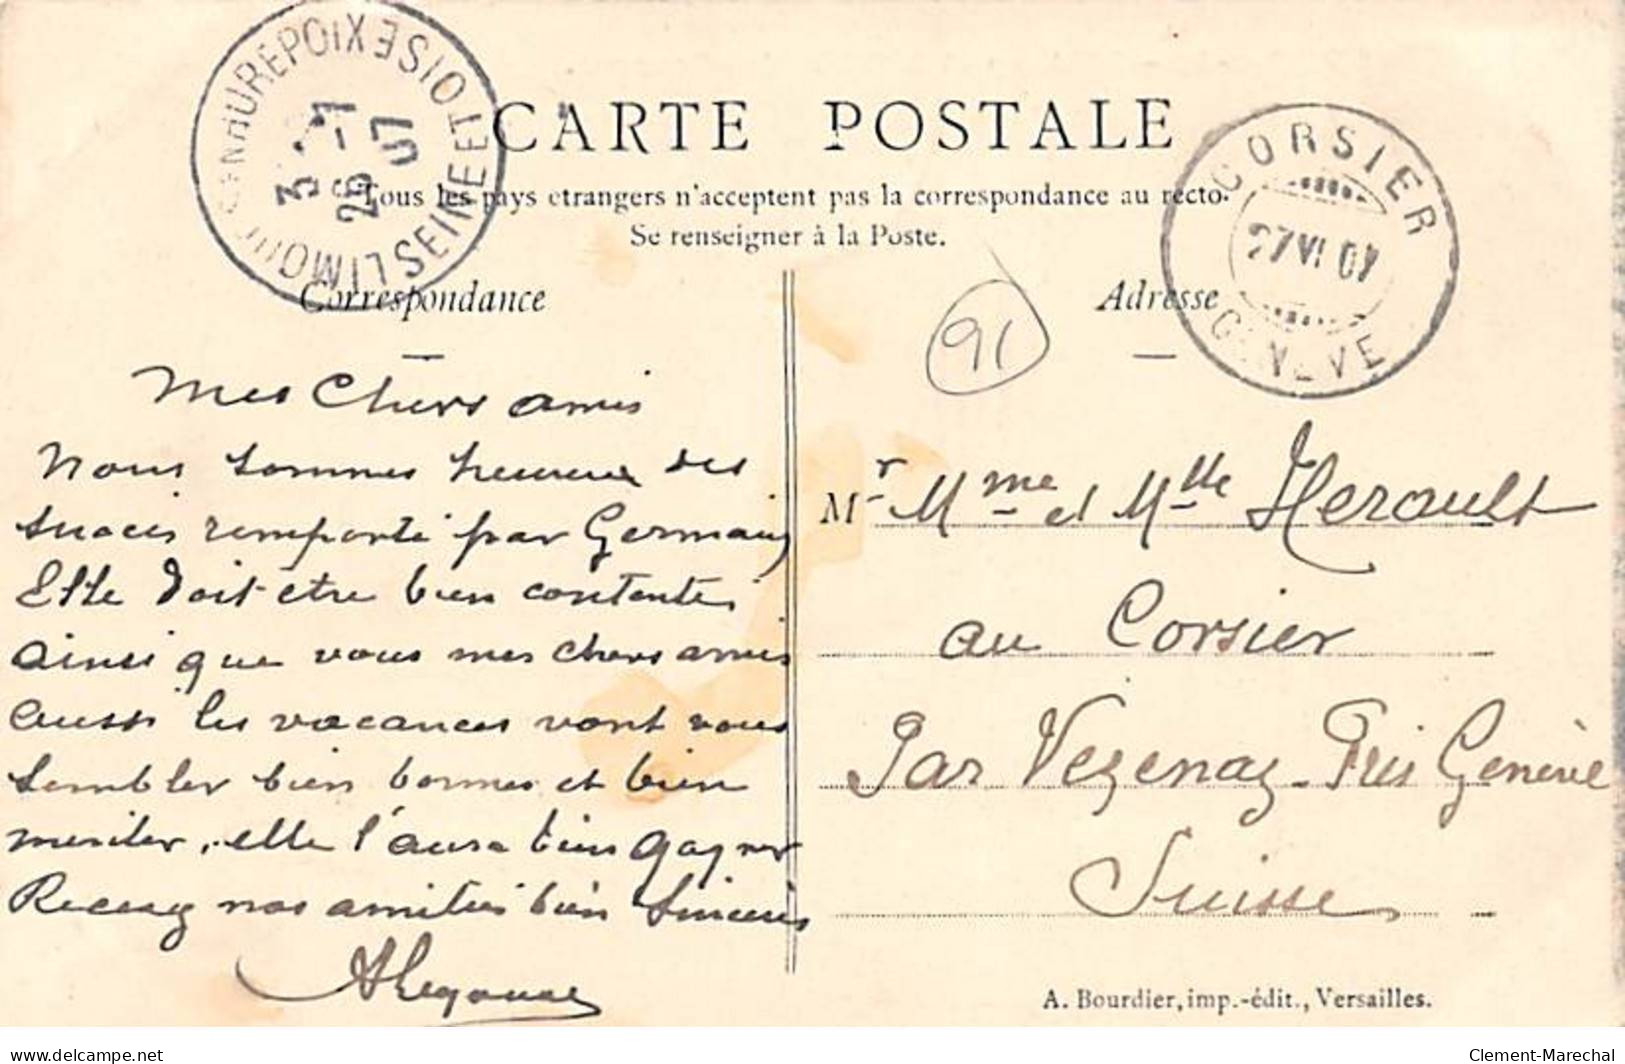 CARTE POSTALE
Tous les pays etrangers n'acceptent pas la correspondance au recto.
Se renseigner à la Poste.
LIMOURS EN HUREPOIX SEINE ET OISE
26 -7
07
CORSIER
27 VI 07
GENÈVE
Correspondance
Adresse
91
Mes Chers amis
Nous sommes heureux des
succès remporté par Germain
Elle doit etre bien contentes
ainsi que vous mes chers amis
aussi les vacances vont vous
sembler bien bonnes et bien
meriter, elle l'aura bien gagner
Recevez nos amitiés bien Sincères
Mr Mme et Mlle Herault
au Corsier
Par Vezenaz - Près Genève
Suisse
A. Bourdier, imp.-édit., Versailles.
delcampe.net
Clement-Marechal